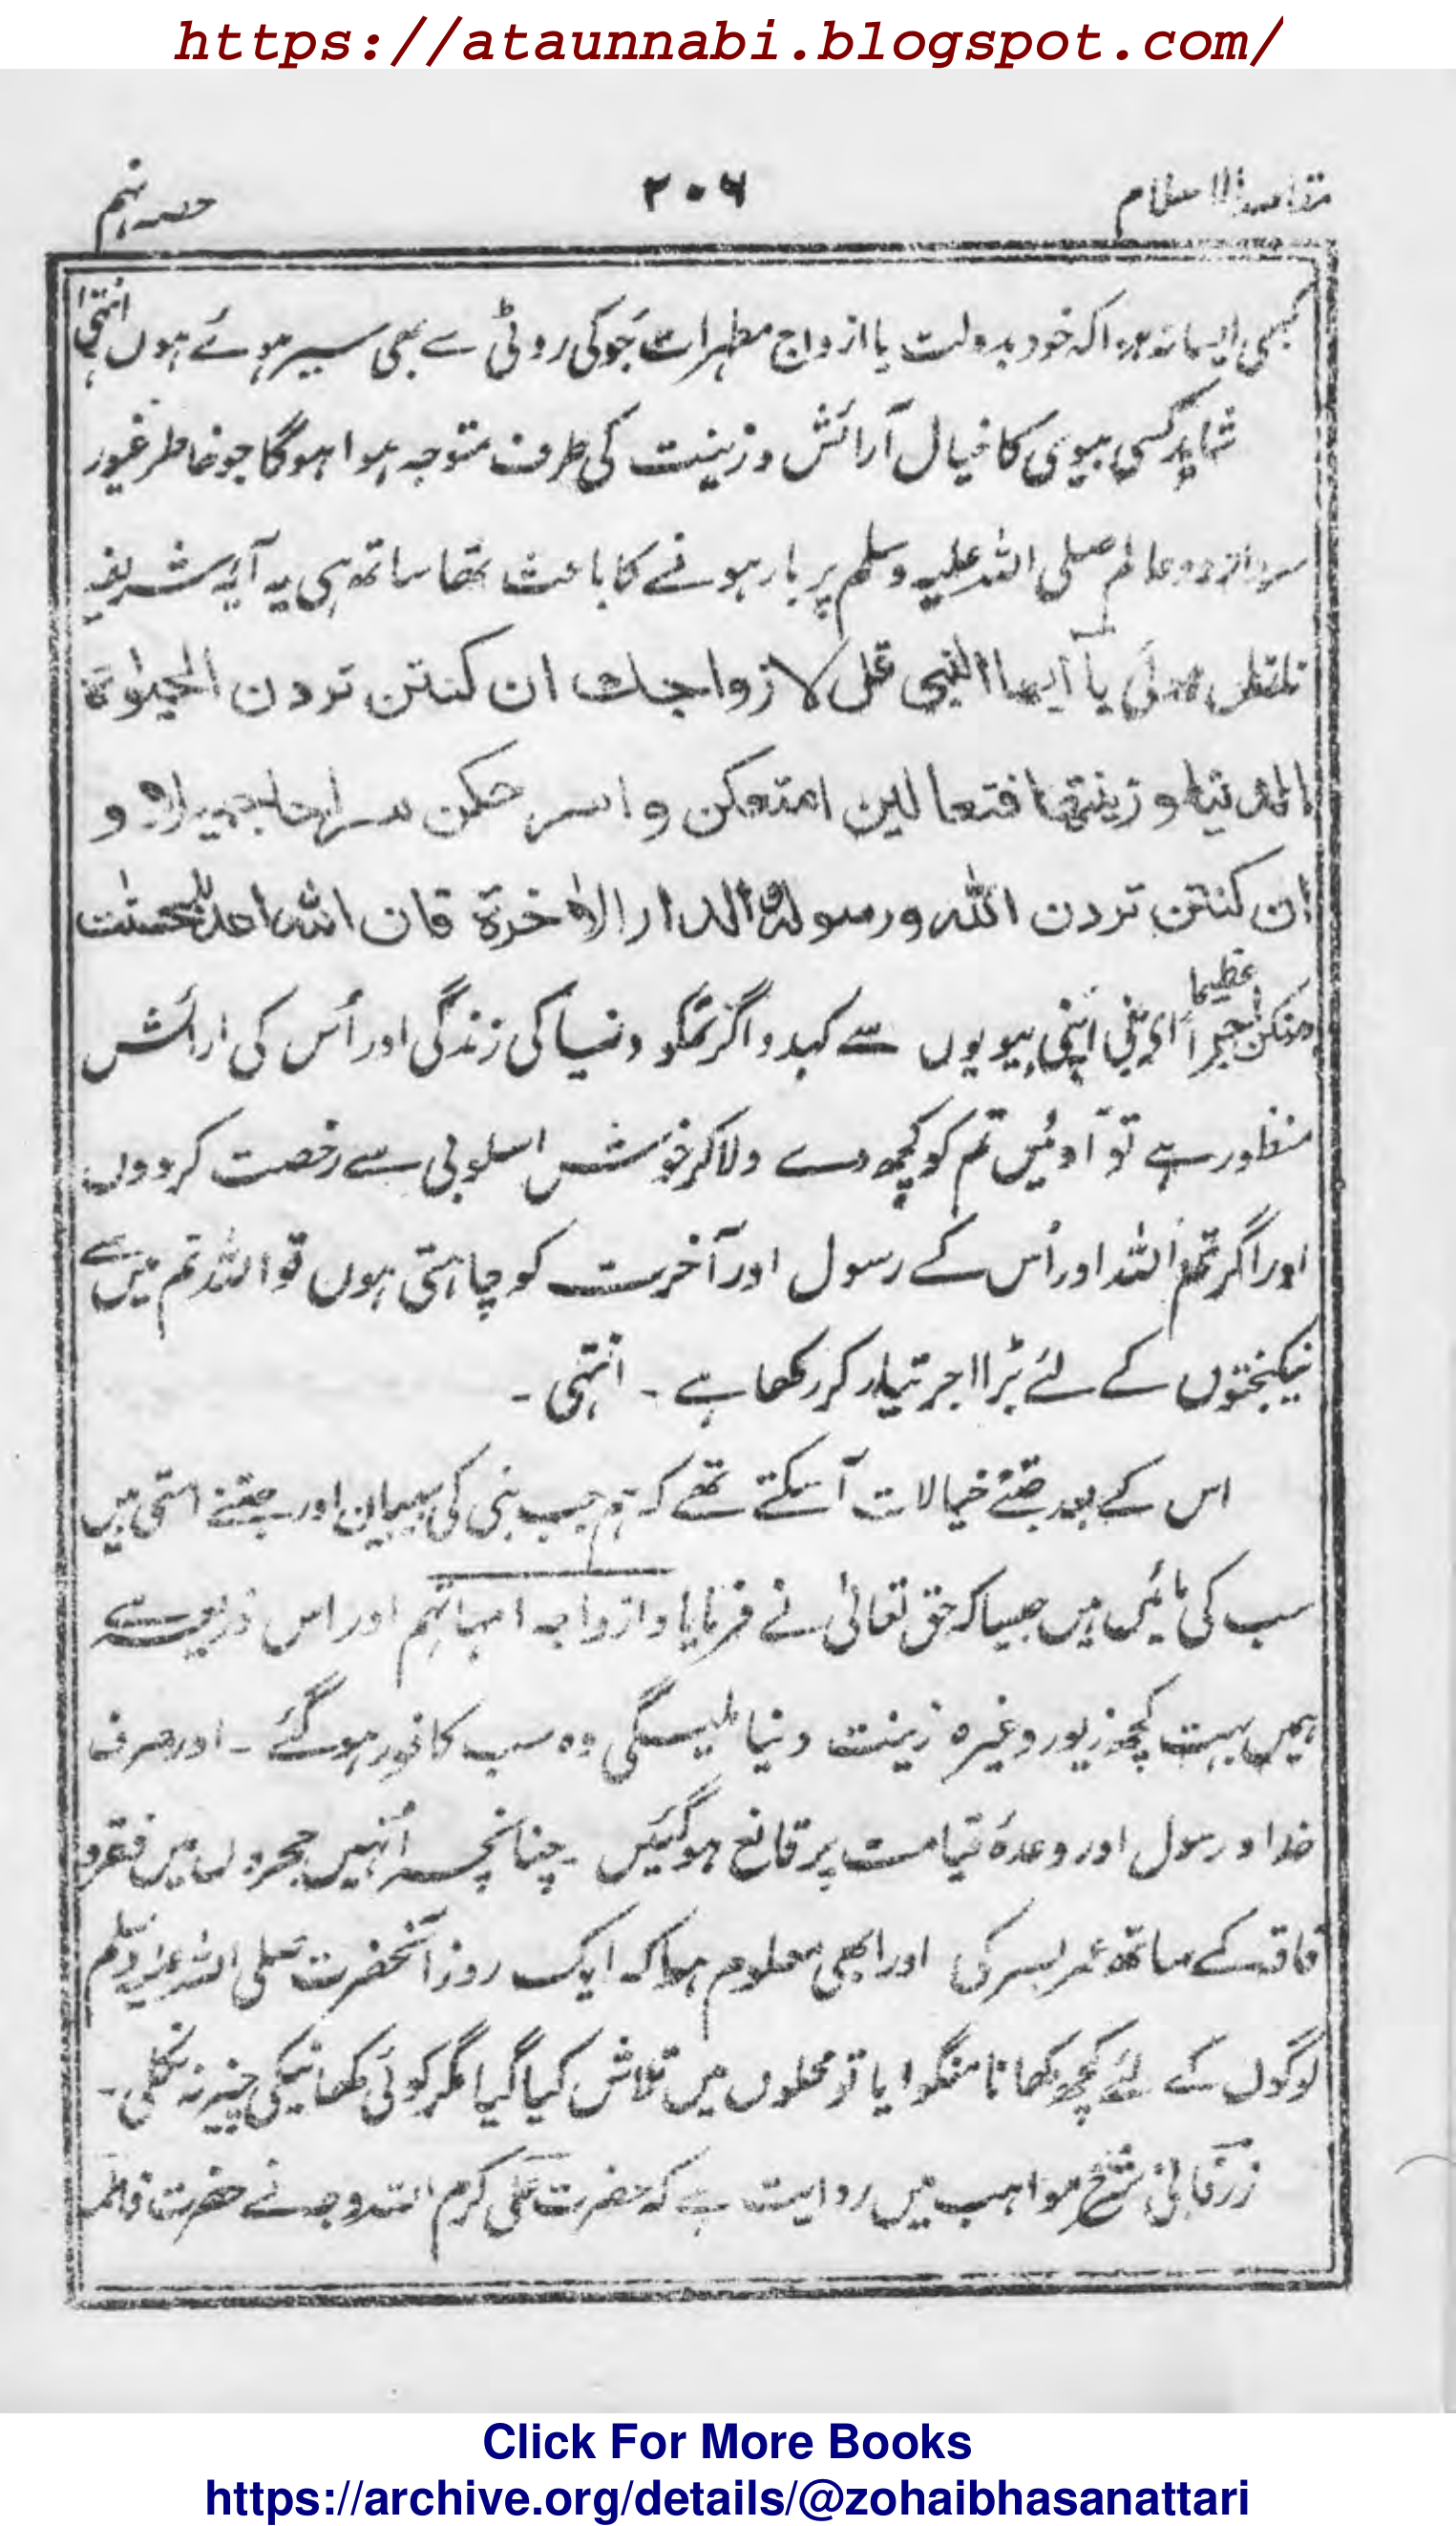 https://ataunnabi.blogspot.com/
مقاصد الاسلام ۲۰۶ حصہ نہم
کبھی ایسا نہ ہوا کہ خود بدولت یا ازواج مطہرات جَو کی روٹی سے بھی سیر ہوئے ہوں انتہیٰ
شاید کسی بیوی کا خیال آرائش و زینت کی طرف متوجہ ہوا ہوگا جو خاطر غیور
سردار دو عالم صلی اللہ علیہ وسلم پر بار ہونے کا باعث تھا ساتھ ہی یہ آیۂ شریفہ
نازل ہوئی یا آیہا النبی قل لازواجك ان کنتن تردن الحیٰوۃ
الدنیا و زینتہا فتعالین امتعکن و اسرحکن سراحا جمیلاہ و
ان کنتن تردن اللہ ورسولہ والدار الاٰخرۃ فان اللہ اعد للمحسنٰت
منکن اجراً عظیما ای نبی اپنی بیویوں سے کہدو اگر تمکو دنیا کی زندگی اور اُس کی ارائش
منظور ہے تو آو میں تم کو کچھ دے دلا کر خوش اسلوبی سے رخصت کر دوں
اور اگر تم اللہ اور اُس کے رسول اور آخرت کو چاہتی ہوں تو اللہ تم میں سے
نیکبختوں کے لئے بڑا اجر تیار کر رکھا ہے ۔ انتہی ۔
اس کے بعد جتنے خیالات آسکتے تھے کہ ہم جب نبی کی بیبیاں اور جتنے امتی ہیں
سب کی مائیں ہیں جیسا کہ حق تعالیٰ نے فرمایا وازواجہ امہاتہم اور اس ذریعہ سے
ہمیں بہت کچھ زیور وغیرہ زینت دنیا ملیسگی وہ سب کافور ہو گئے ۔ اور صرف
خدا و رسول اور وعدۂ قیامت پر قانع ہوگئیں ۔ چنانچہ اُنہیں حجروں میں فقر و
فاقہ کے ساتھ عمر بسر کی اور ابھی معلوم ہوا کہ ایک روز آنحضرت صلی اللہ علیہ وسلم
لوگوں کے لئے کچھ کھانا منگوایا تو محلوں میں تلاش کیا گیا مگر کوئی کھانیکی چیز نہ نکلی ۔
زرقانی شرح مواہب میں روایت ہے کہ حضرت علی کرم اللہ وجہ نے حضرت فاطمہ
Click For More Books
https://archive.org/details/@zohaibhasanattari